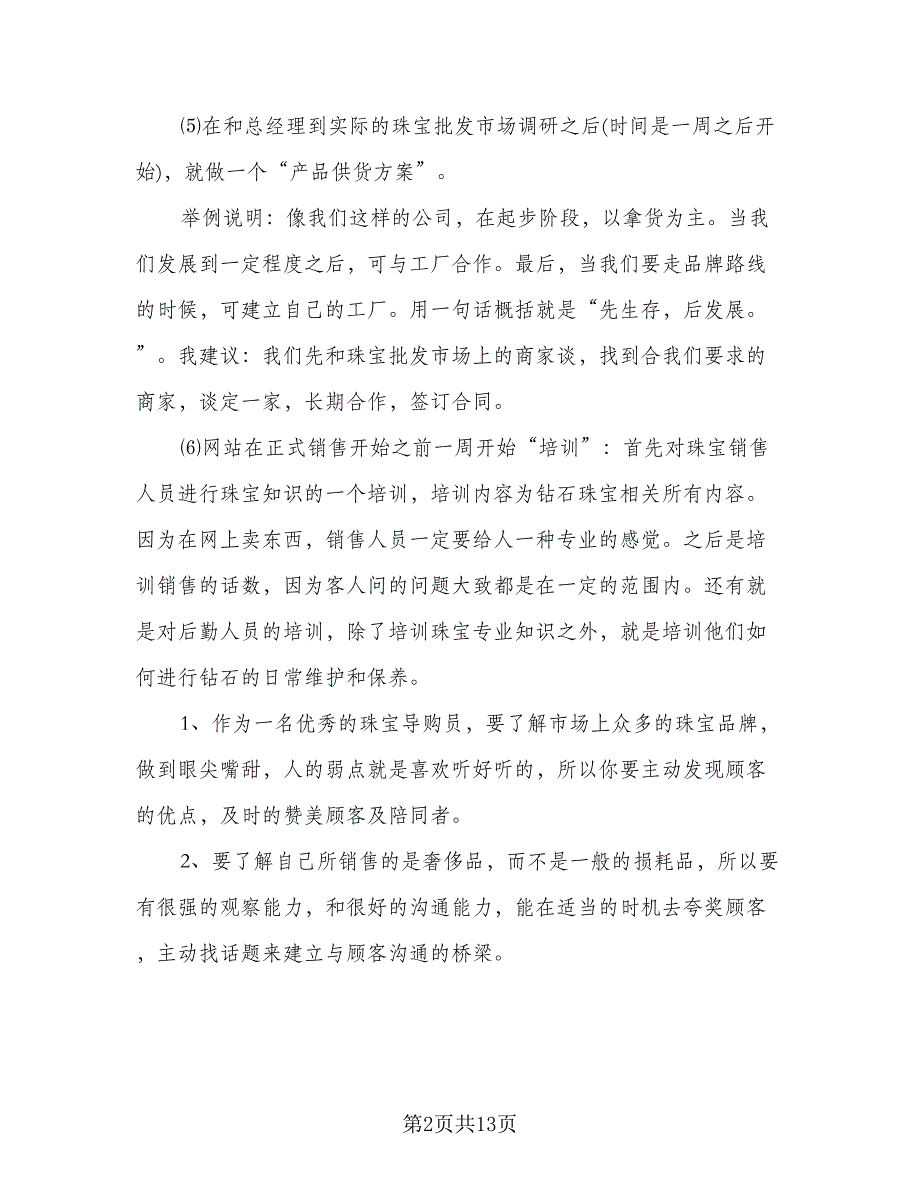 ⑸在和总经理到实际的珠宝批发市场调研之后(时间是一周之后开
始)，就做一个“产品供货方案”。
举例说明：像我们这样的公司，在起步阶段，以拿货为主。当我
们发展到一定程度之后，可与工厂合作。最后，当我们要走品牌路线
的时候，可建立自己的工厂。用一句话概括就是“先生存，后发展。
”。我建议：我们先和珠宝批发市场上的商家谈，找到合我们要求的
商家，谈定一家，长期合作，签订合同。
⑹网站在正式销售开始之前一周开始“培训”：首先对珠宝销售
人员进行珠宝知识的一个培训，培训内容为钻石珠宝相关所有内容。
因为在网上卖东西，销售人员一定要给人一种专业的感觉。之后是培
训销售的话数，因为客人问的问题大致都是在一定的范围内。还有就
是对后勤人员的培训，除了培训珠宝专业知识之外，就是培训他们如
何进行钻石的日常维护和保养。
1、作为一名优秀的珠宝导购员，要了解市场上众多的珠宝品牌，
做到眼尖嘴甜，人的弱点就是喜欢听好听的，所以你要主动发现顾客
的优点，及时的赞美顾客及陪同者。
2、要了解自己所销售的是奢侈品，而不是一般的损耗品，所以要
有很强的观察能力，和很好的沟通能力，能在适当的时机去夸奖顾客
，主动找话题来建立与顾客沟通的桥梁。
第2页共13页